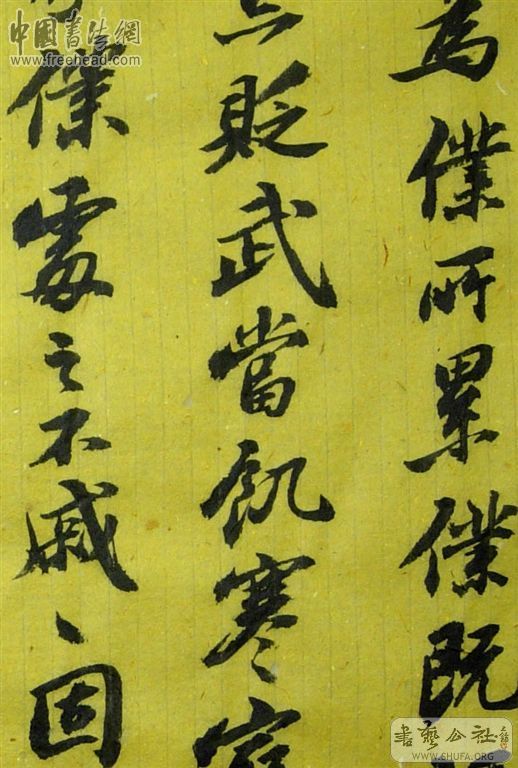 為僕所累僕既
貶武當飢寒窮
僕處之不戚〻固
中國書法網
www.freehead.com
書藝公社
WWW.CHUFA.ORG